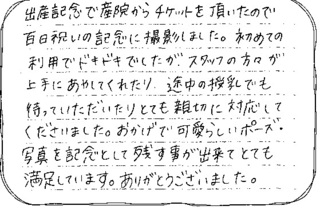 出産記念で産院からチケットを頂いたので
百日祝いの記念に撮影しました。初めての
利用でドキドキでしたが スタッフの方々が
上手にあやしてくれたり、途中の授乳でも
待っていただいたりとても親切に対応して
くださいました。おかげで可愛らしいポーズ・
写真を記念として残す事が出来てとても
満足しています。ありがとうございました。